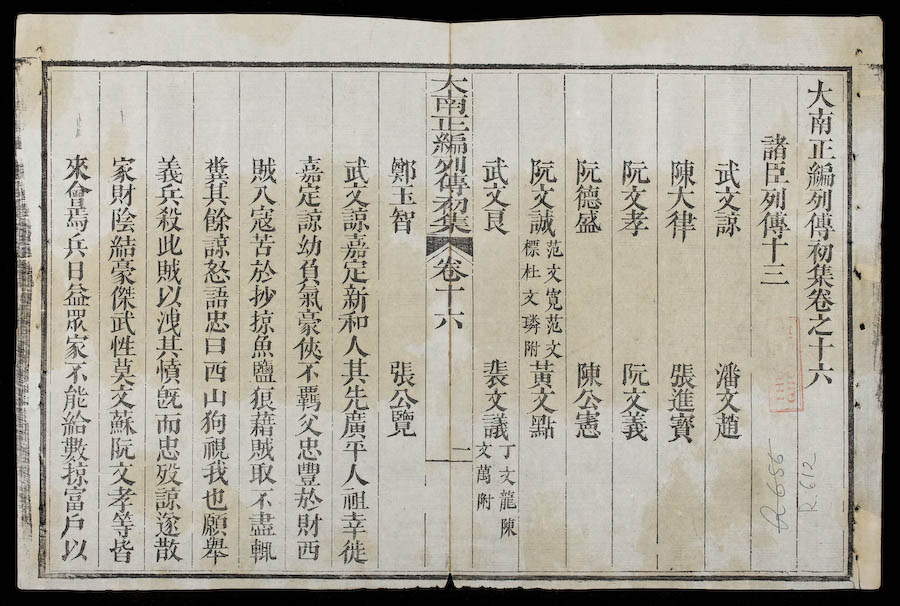 大南正編列傳初集卷之十六
諸臣列傳十三
武文諒 潘文趙
陳大律 張進寳
阮文孝 阮文義
阮德盛 陳公憲
阮文誠 范文寬范文標杜文璘附 黃文點
武文良 裴文議 丁文龍陳文萬附
大南正編列傳初集 卷十六 一
鄭玉智 張公覽
武文諒嘉定新和人其先廣平人祖幸徙
嘉定諒幼負氣豪俠不羈父忠豐於財西
賊入寇苦於抄掠魚鹽狼藉賊取不盡輒
糞其餘諒怒語忠曰西山狗視我也願舉
義兵殺此賊以洩其憤旣而忠歿諒遂散
家財陰結豪傑武性莫文蘇阮文孝等皆
來會焉兵日益眾家不能給數掠富戶以
R.686
R.612